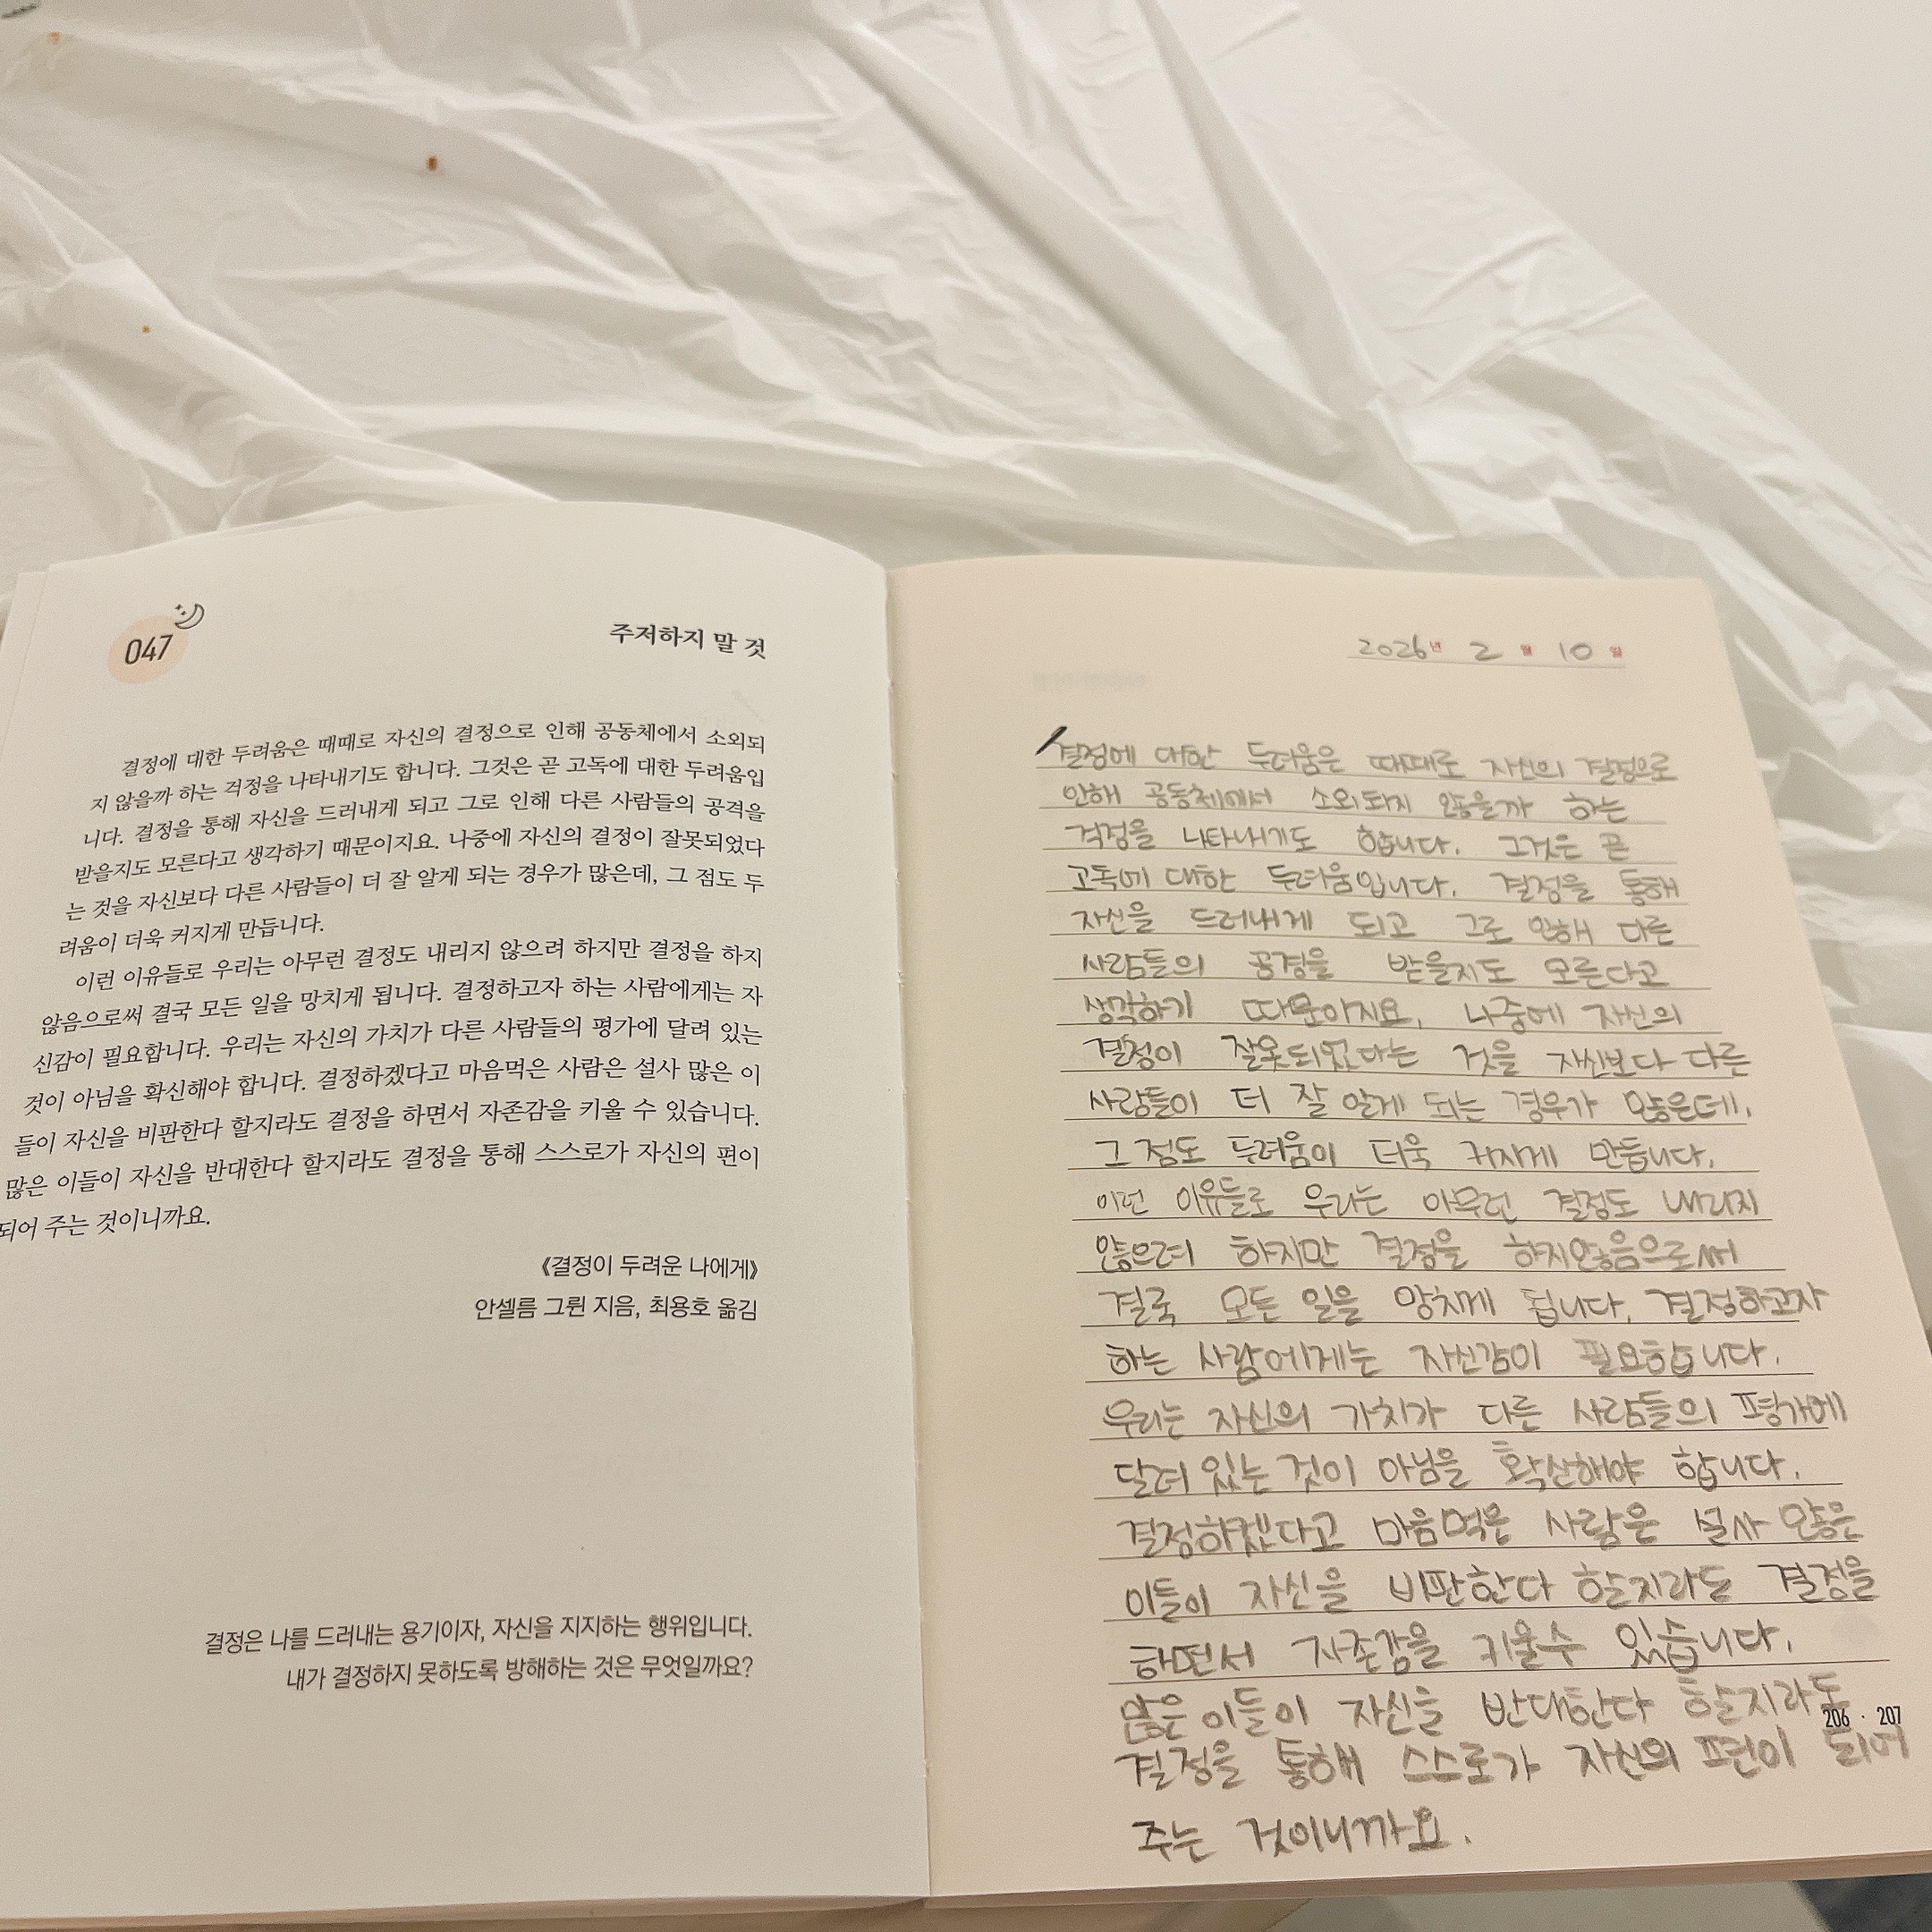 047
주저하지 말 것
결정에 대한 두려움은 때때로 자신의 결정으로 인해 공동체에서 소외되
지 않을까 하는 걱정을 나타내기도 합니다. 그것은 곧 고독에 대한 두려움입
니다. 결정을 통해 자신을 드러내게 되고 그로 인해 다른 사람들의 공격을
받을지도 모른다고 생각하기 때문이지요. 나중에 자신의 결정이 잘못되었다
는 것을 자신보다 다른 사람들이 더 잘 알게 되는 경우가 많은데, 그 점도 두
려움이 더욱 커지게 만듭니다.
이런 이유들로 우리는 아무런 결정도 내리지 않으려 하지만 결정을 하지
않음으로써 결국 모든 일을 망치게 됩니다. 결정하고자 하는 사람에게는 자
신감이 필요합니다. 우리는 자신의 가치가 다른 사람들의 평가에 달려 있는
것이 아님을 확신해야 합니다. 결정하겠다고 마음먹은 사람은 설사 많은 이
들이 자신을 비판한다 할지라도 결정을 하면서 자존감을 키울 수 있습니다.
많은 이들이 자신을 반대한다 할지라도 결정을 통해 스스로가 자신의 편이
되어 주는 것이니까요.
《결정이 두려운 나에게》
안셀름 그륀 지음, 최용호 옮김
결정은 나를 드러내는 용기이자, 자신을 지지하는 행위입니다.
내가 결정하지 못하도록 방해하는 것은 무엇일까요?
2026년 2월 10일
결정에 대한 두려움은 때때로 자신의 결정으로
인해 공동체에서 소외되지 않을까 하는
걱정을 나타내기도 합니다. 그것은 곧
고독에 대한 두려움입니다. 결정을 통해
자신을 드러내게 되고 그로 인해 다른
사람들의 공격을 받을지도 모른다고
생각하기 때문이지요. 나중에 자신의
결정이 잘못되었다는 것을 자신보다 다른
사람들이 더 잘 알게 되는 경우가 많은데,
그 점도 두려움이 더욱 커지게 만듭니다.
이런 이유들로 우리는 아무런 결정도 내리지
않으려 하지만 결정을 하지않음으로써
결국 모든 일을 망치게 됩니다. 결정하고자
하는 사람에게는 자신감이 필요합니다.
우리는 자신의 가치가 다른 사람들의 평가에
달려 있는 것이 아님을 확신해야 합니다.
결정하겠다고 마음먹은 사람은 설사 많은
이들이 자신을 비판한다 할지라도 결정을
하면서 자존감을 키울수 있습니다.
많은 이들이 자신을 반대한다 할지라도
206 · 207
결정을 통해 스스로가 자신의 편이 되어
주는 것이니까요.